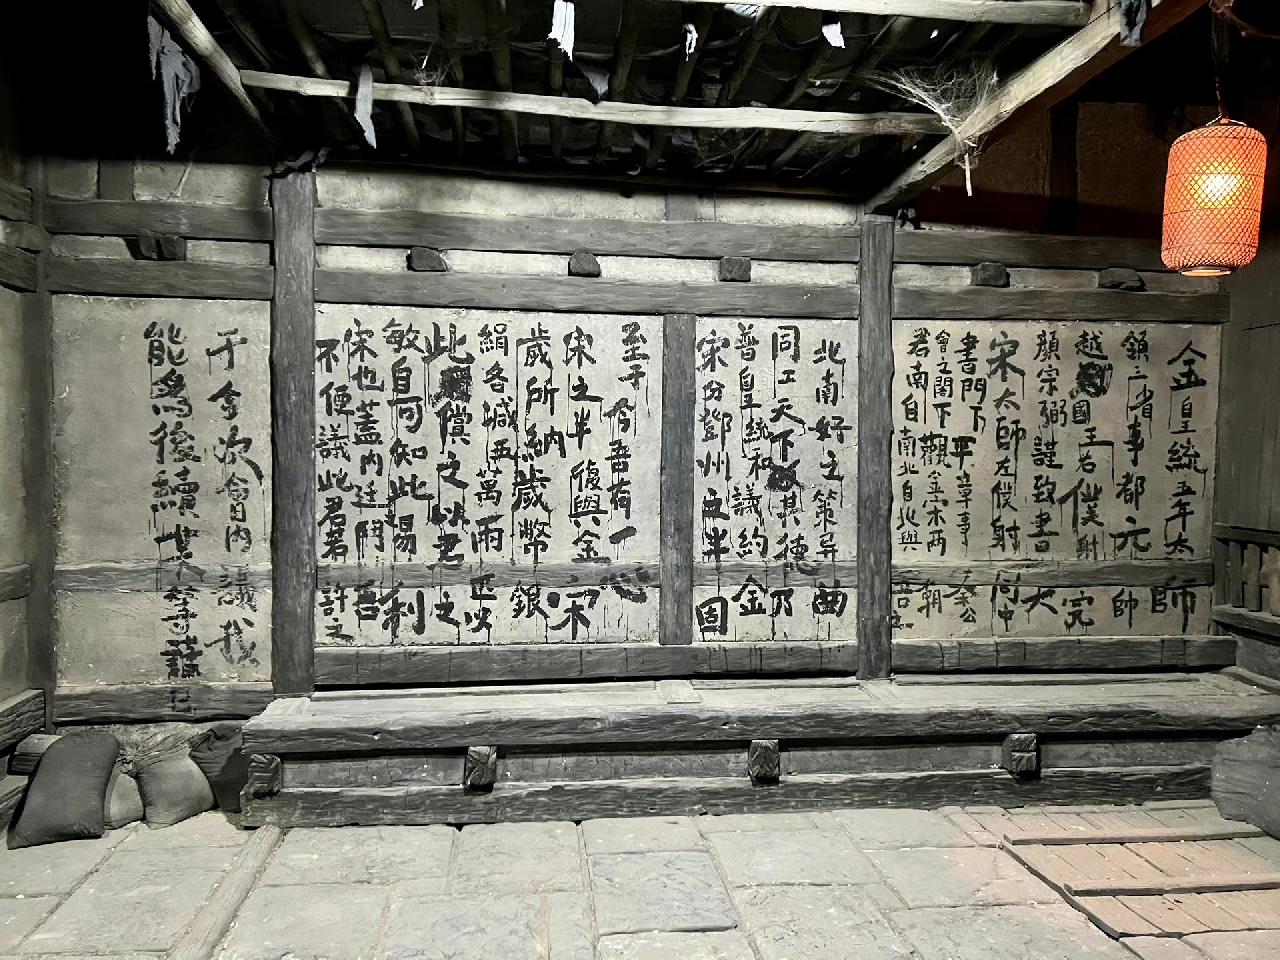 金皇統五年太師
鎮三省事都元帥
越國王右僕射完
顏宗弼謹致書大
宋太師左僕射同中
書門下平章事秦公
會之閣下觀金宋兩朝
君南自南北自北與吾
北南好之策異曲
同工天下其德乃
普皇統和議約金
宋分鄧州之半固
至于今吾有一心
宋之半復與金宋
歲所納歲幣銀
絹各減五萬兩匹以
此償之以君之
敏自可知此易利
宋也蓋內廷鬥吾
不便議此君若許之
于金次會內議我
能為後續